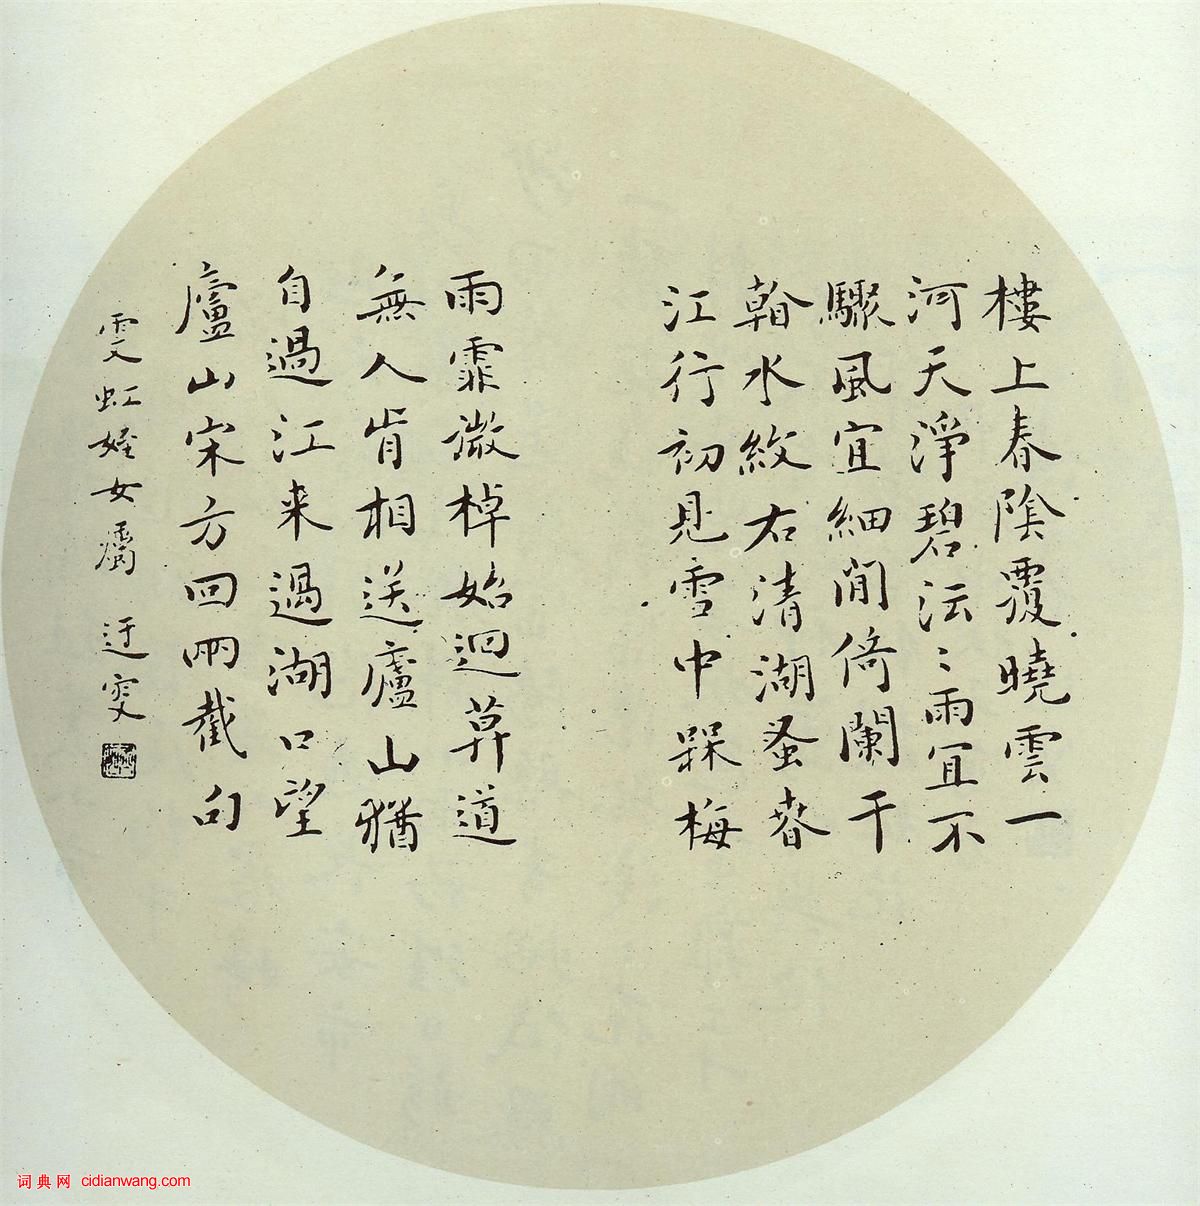 樓上春陰覆曉雲一
河天淨碧沄〻雨宜不
驟風宜細閒倚闌干
水紋右清湖蚤春
江行初見雪中梅
雨霏微棹始迴莫道
無人肯相送廬山猶
自過江来過湖口望
廬山宋方回兩截句
雯虹姪女屬 迂叟
词典网 cidianwang.com